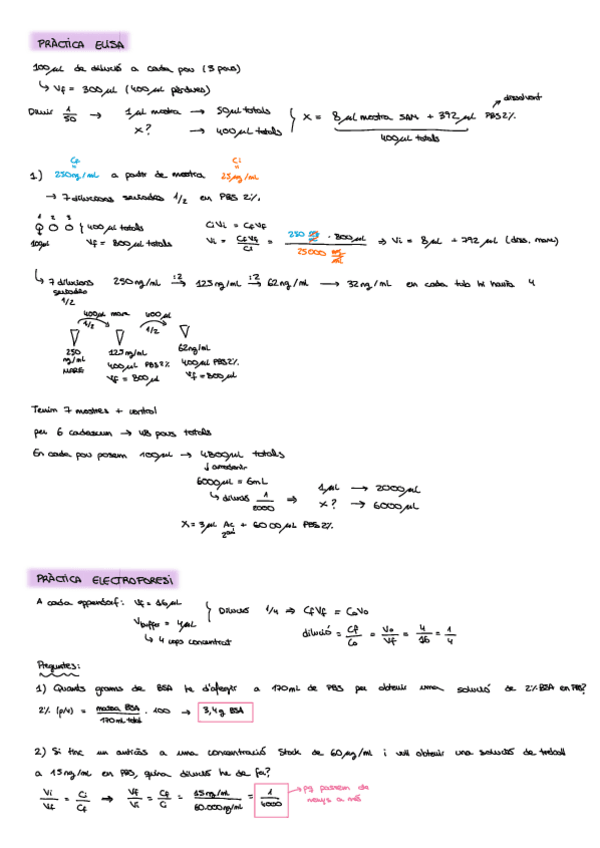 PRÀCTICA ELISA
100µL de dilució a cada pou (3 pous)
↳ Vf = 300µL (400µL pèrdues)
Diluir 1/50 → 1µL mostra → 50µL totals
x? → 400µL totals
x = 8µL mostra + 392µL PBS2%
dissolvent
400µL totals
Cf Ci
1) 250ng/mL a partir de mostra 25µg/mL
→ 7 dilucions seriades 1/2 en PBS 2%.
1 2 3
400µL totals
100µL Vf = 800µL totals
CiVi = CfVf
Vi = CfVf/Ci = 250 · 800µL / 25000 ⇒ Vi = 8µL + 792µL (diss. mare)
↳ 7 dilucions seriades 1/2 250ng/mL :2→ 125ng/mL :2→ 62ng/mL → 32ng/mL en cada tub hi haurà 4
400µL mare 400µL
1/2 1/2
250 ng/mL MARE
125ng/mL 400µL PBS2% Vf = 800µL
62ng/mL 400µL PBS2%. Vf = 800µL
Tenim 7 mostres + control
per 6 cadascun → 48 pous totals
En cada pou posem 100µL → 4800µL totals
↓ arrodonir
6000µL = 6mL
↳ dilució 1/2000 ⇒ 1µL → 2000µL
x? → 6000µL
X = 3µL Ac 2ari + 6000µL PBS2%.
PRÀCTICA ELECTROFORESI
A cada eppendorf: Vf = 16µL
Vbuffer = 4µL
↳ 4 cops concentrat
Dilució 1/4 ⇒ CfVf = CoVo
dilució = Cf/Co = Vo/Vf = 4/16 = 1/4
Preguntes:
1) Quants grams de BSA he d'afegir a 170mL de PBS per obtenir una solució de 2% BSA en PBS?
2% (p/v) = massa BSA / 170mL total · 100 → 3,4g BSA
2) Si tinc un anticòs a una concentració stock de 60µg/mL i vull obtenir una solució de treball
a 15ng/mL en PBS, quina dilució he de fer?
Vi/Vf = Ci/Cf ⇒ Vf/Vi = Cf/Ci = 15ng/mL / 60.000ng/mL = 1/4000
→ pq passem de menys a més